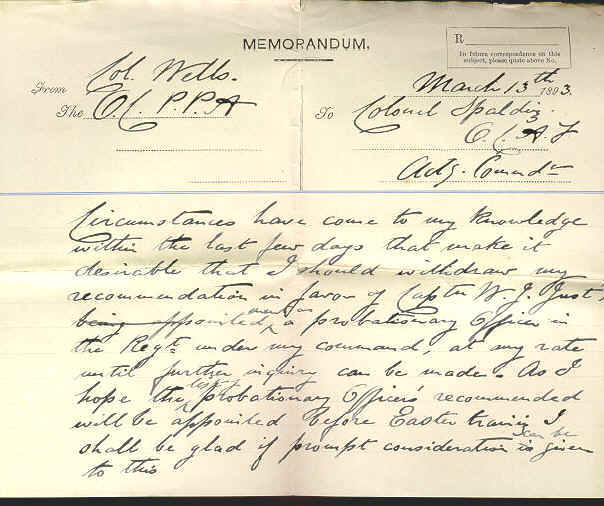 MEMORANDUM.
R
In future correspondence on this
subject, please quote above No.
From Col. Wells.
The O.C. P.P.A
March 13th 1893.
To Colonel Spalding.
O.C. A F
Actg. Comndr
Circumstances have come to my knowledge
within the last few days that make it
desirable that I should withdraw my
recommendation in favor of Captn W. J. Just's
being appointed, as a probationary Officer in
the Regt. under my command, at any rate
until further inquiry can be made. As I
hope the list of probationary Officers recommended
will be appointed before Easter training I
shall be glad if prompt consideration can be is given
to this